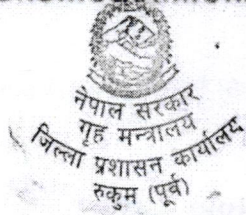 नेपाल सरकार
गृह मन्त्रालय
जिल्ला प्रशासन कार्यालय
रुकुम (पूर्व)